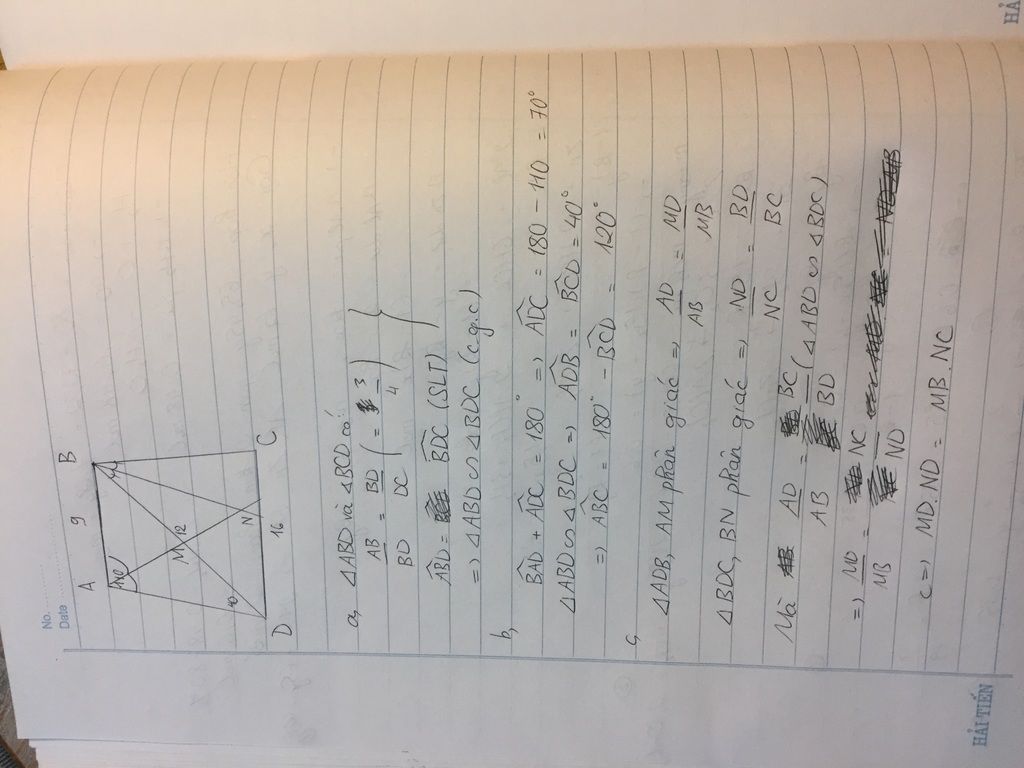 No.
Date
A 9 B
110°
M 12
40
N
D 16 C
a, △ABD và △BCD có:
AB/BD = BD/DC (= 3/4) }
ABD = BDC (SLT) }
=> △ABD ∽ △BDC (c.g.c)
b, BAD + ADC = 180° => ADC = 180 - 110 = 70°
△ABD ∽ △BDC => ADB = BCD = 40°
=> ABC = 180° - BCD = 120°
c, △ADB, AM phân giác => AD/AB = MD/MB
△BDC, BN phân giác => ND/NC = BD/BC
Mà AD/AB = BC/BD (△ABD ∽ △BDC)
=> MD/MB = NC/ND
<=> MD.ND = MB.NC
HẢI TIẾN
HẢ